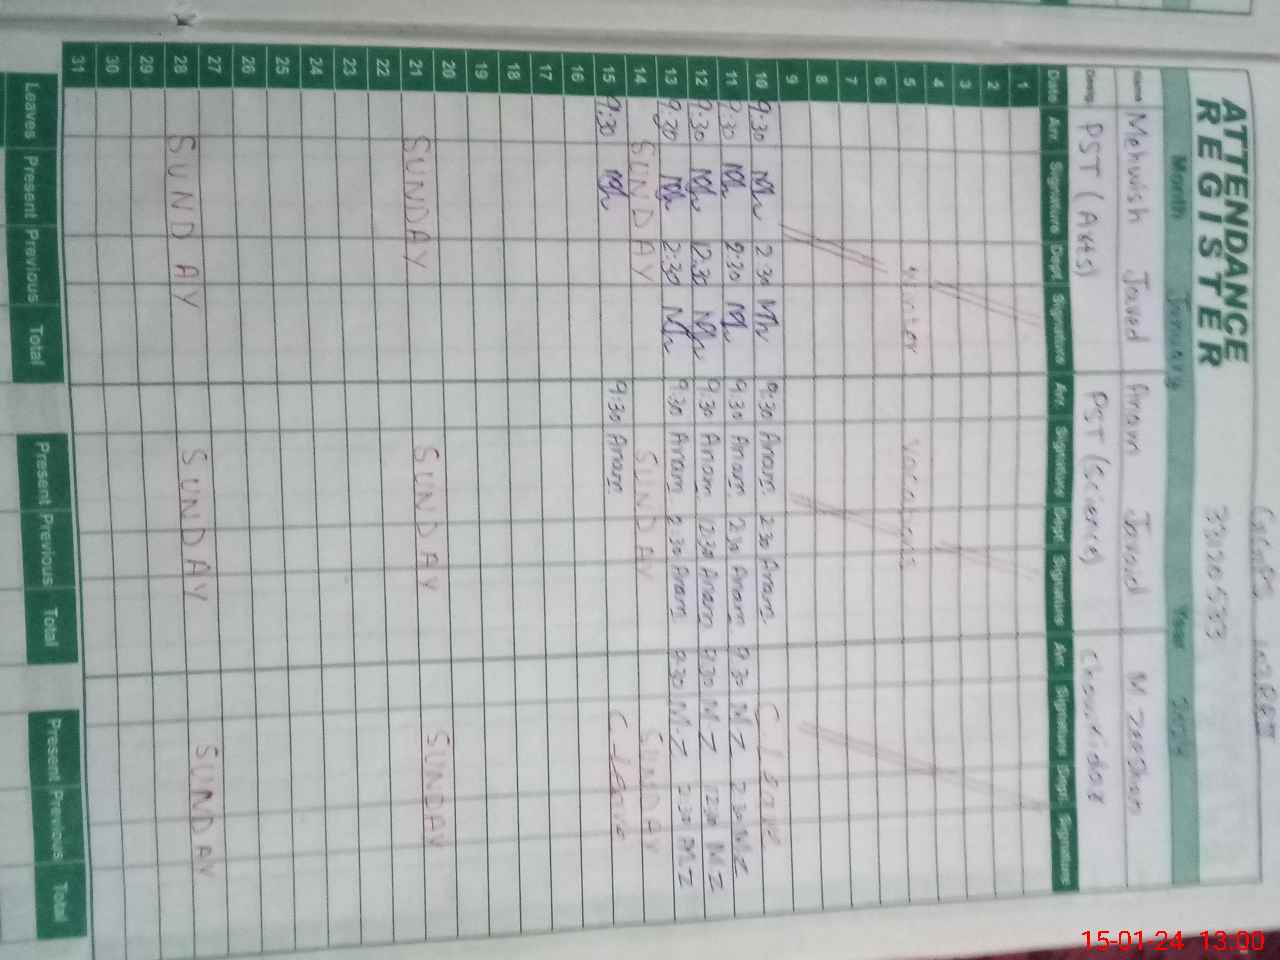 ATTENDANCE
REGISTER
33120533
Month January Year 2024
Name Mehwish Javed Anam Javed M Zeeshan
Desig. PST (Arts) PST (Science) Chowkidar
Date Arr. Signature Dept. Signature Arr. Signature Dept. Signature Arr. Signature Dept. Signature
1
2
3
4
5 Winter Vacations
6
7
8
9
10 9:30 Mh 2:30 Mh 9:30 Anam 2:30 Anam C-Leave
11 9:30 Mh 2:30 Mh 9:30 Anam 2:30 Anam 9:30 M.Z 2:30 M.Z
12 9:30 Mh 12:30 Mh 9:30 Anam 12:30 Anam 9:30 M.Z 12:30 M.Z
13 9:30 Mh 2:30 Mh 9:30 Anam 2:30 Anam 9:30 M.Z 2:30 M.Z
14 SUNDAY SUNDAY SUNDAY
15 9:30 Mh 9:30 Anam C-Leave
16
17
18
19
20
21 SUNDAY SUNDAY SUNDAY
22
23
24
25
26
27
28 SUNDAY SUNDAY SUNDAY
29
30
31
Leaves Present Previous Total Present Previous Total Present Previous Total
15-01-24 13:00